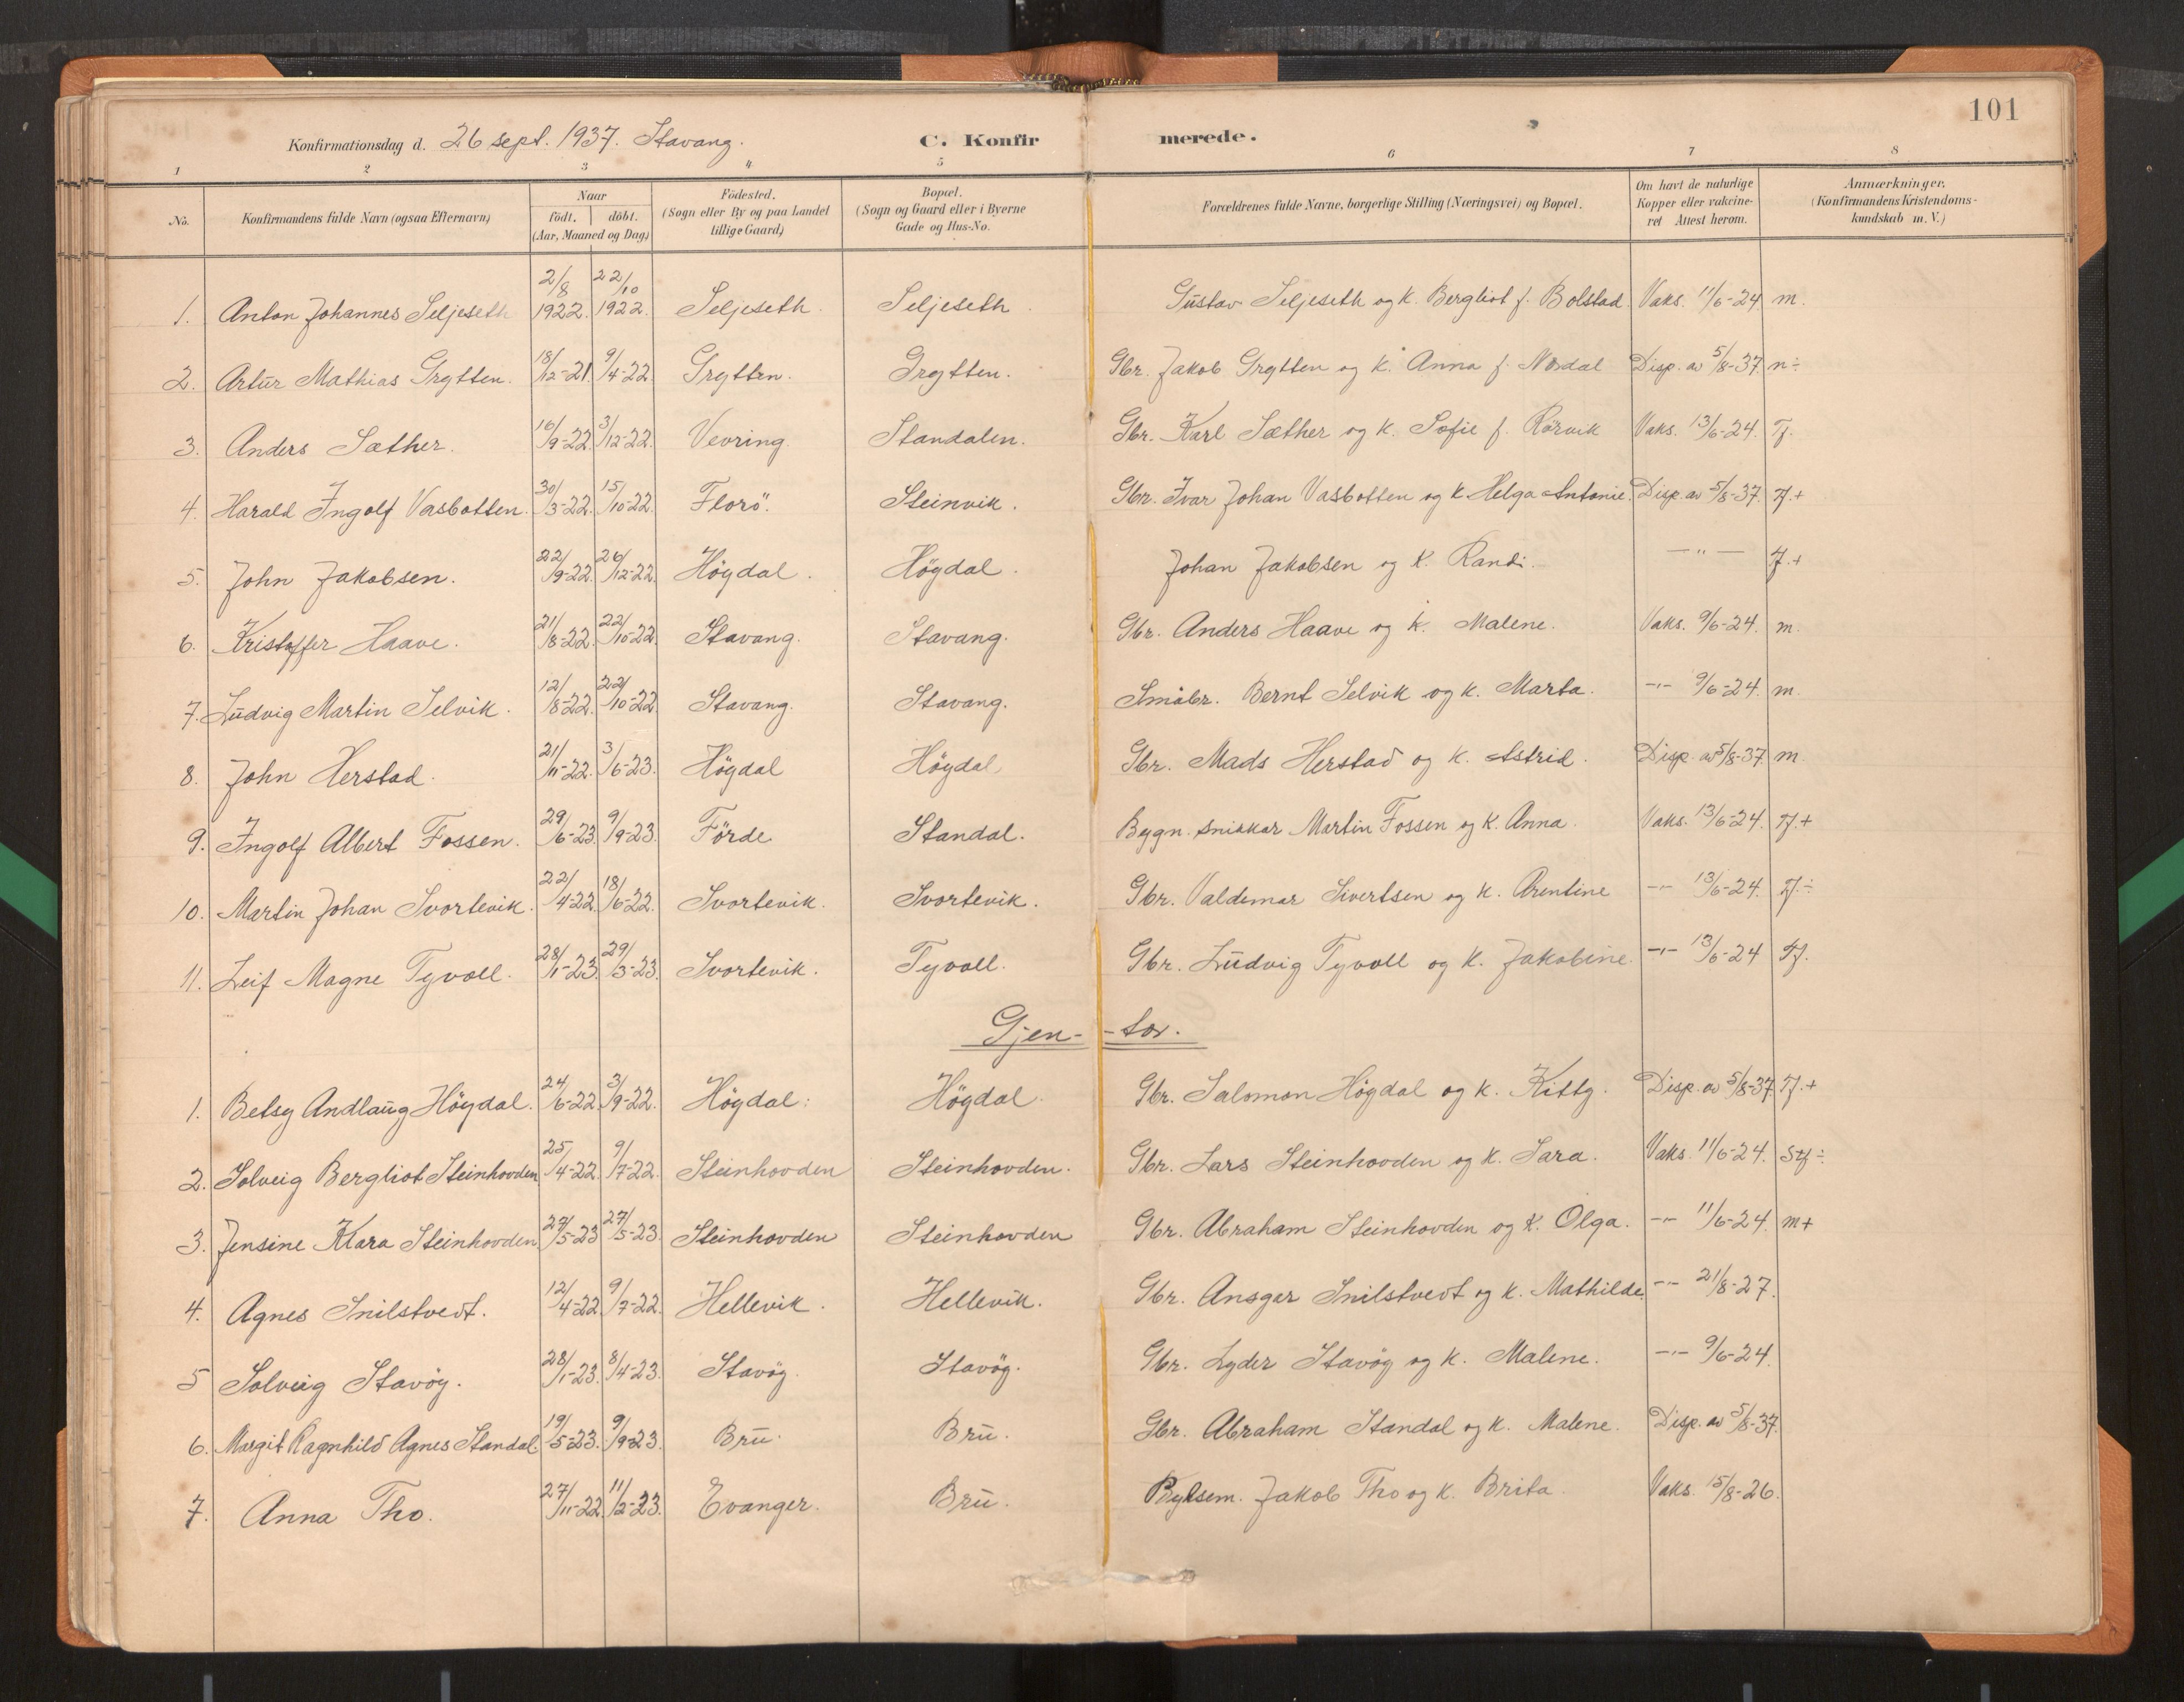 101
Konfirmationsdag d. 26 sept. 1937. Stavang. C. Konfirmerede.
1 2 3 4 5 6 7 8
No. Konfirmandens fulde Navn (ogsaa Efternavn) Naar födt. döbt. (Aar, Maaned og Dag) Födested. (Sogn eller By og paa Landet tillige Gaard) Bopæl. (Sogn og Gaard eller i Byerne Gade og Hus-No. Forældrenes fulde Navne, borgerlige Stilling (Næringsvei) og Bopæl. Om havt de naturlige Kopper eller vakcineret Attest herom. Anmærkninger. (Konfirmandens Kristendomskundskab m. V.)
1. Anton Johannes Seljeseth 2/8 1922. 22/10 1922. Seljeseth. Seljeseth. Gustav Seljeseth og k. Bergliot f. Bolstad. Vaks. 11/6-24 m.
2. Artur Mathias Grytten. 18/12-21. 9/4-22. Grytten. Grytten. Gbr. Jakob Grytten og k. Anna f. Nordal Disp. av 5/8-37. m÷
3. Anders Sæther. 16/9-22. 3/12-22. Vevring. Standalen. Gbr. Karl Sæther og k. Sofie f. Rørvik Vaks. 13/6-24. Tf.
4. Harald Ingolf Vasbotten. 30/3-22. 15/10-22. Florö. Steinvik. Gbr. Ivar Johan Vasbotten og k. Helga Antonie. Disp. av 5/8-37. Tf.+
5. John Jakobsen. 22/9-22. 26/12-22. Högdal. Högdal. Johan Jakobsen og k. Randi. — " — Tf.+
6. Kristoffer Haave. 21/8-22. 22/10-22 Stavang. Stavang. Gbr. Anders Haave og k. Malene. Vaks. 9/6-24. m.
7. Ludvig Martin Selvik. 12/8-22. 22/10-22 Stavang. Stavang. Småbr. Bernt Selvik og k. Marta. -"- 9/6-24. m.
8. John Herstad. 21/11-22. 3/6-23. Högdal Högdal. Gbr. Mads Herstad og k. Astrid. Disp. av 5/8-37. m.
9. Ingolf Albert Fossen. 29/6-23. 9/9-23. Förde Standal. Bygn. snikkar Martin Fossen og k. Anna. Vaks. 13/6-24. Tf.+
10. Martin Johan Svortevik. 22/4-22. 18/6-22. Svortevik. Svortevik. Gbr. Valdemar Sivertsen og k. Arentine -"- 13/6-24. Tf.÷
11. Leif Magne Tyvoll. 28/1-23. 29/3-23. Svortevik. Tyvoll. Gbr. Ludvig Tyvoll og k. Jakobine. -"- 13/6-24 Tf.
Gjen- -tor.
1. Betsy Andlaug Högdal. 24/6-22. 3/9-22. Högdal. Högdal. Gbr. Salomon Högdal og k. Kitty. Disp. av 5/8-37. Tf.+
2. Solveig Bergliot Steinhovden 25/4-22. 9/7-22. Steinhovden Steinhovden. Gbr. Lars Steinhovden og k. Sara. Vaks. 11/6-24. Stf÷
3. Jensine Klara Steinhovden. 27/5-23 27/5-23. Steinhovden Steinhovden Gbr. Abraham Steinhovden og k. Olga. -"- 11/6-24. m+
4. Agnes Snilstvedt. 12/4-22. 9/7-22. Hellevik. Hellevik. Gbr. Ansgar Snilstvedt og k. Mathilde. -"- 21/8-27.
5 Solveig Stavöy. 28/1-23. 8/4-23. Stavöy. Stavöy. Gbr. Lyder Stavöy og k. Malene. -"- 9/6-24.
6. Margit Ragnhild Agnes Standal 19/5-23. 9/9-23. Bru. Bru. Gbr. Abraham Standal og k. Malene. Disp. av 5/8-37.
7. Anna Tho. 27/11-22. 11/2-23. Evanger. Bru. Jakob Tho og k. Brita. Vaks. 15/8-26.